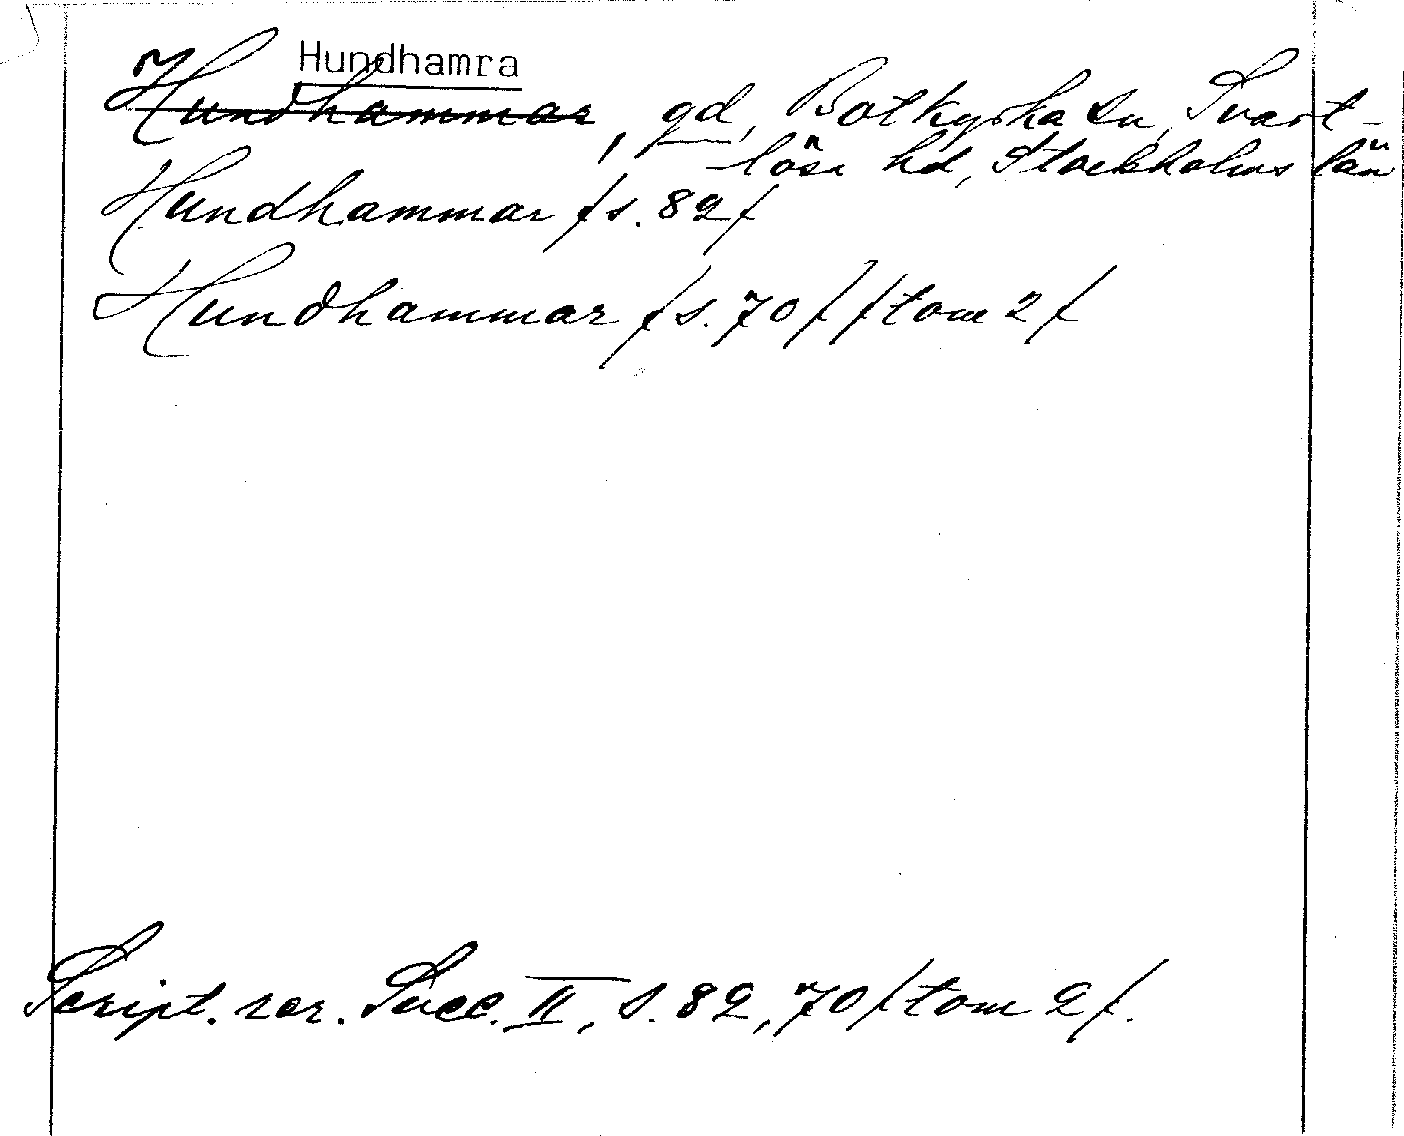 Hundhamra
Hundhammar, gd, Botkyrka sn, Svart-
lösa hd, Stockholms län
Hundhammar /s. 82/
Hundhammar /s. 70/ /tom 2/
Script. rer. Svec. II, s. 82, 70 /tom 2/.